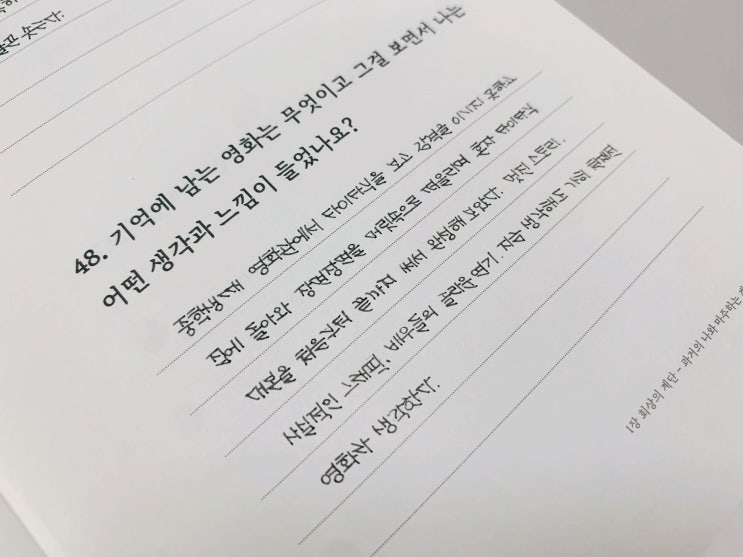 싶다.
48. 기억에 남는 영화는 무엇이고 그걸 보면서 나는
어떤 생각과 느낌이 들었나요?
중학생때 영화관에서 타이타닉을 보고 감동을 이기지 못하고
집에 돌아와 장면장면을 머릿속에 떠올리며 혼자
대본을 완성해 보았다. 멋진 스토리,
사실적인 스케일, 배우들의 연기. 지금 생각해도 가장 완벽한
영화라 생각한다.
1장 회상의 제단 - 과거의 나와 마주하는